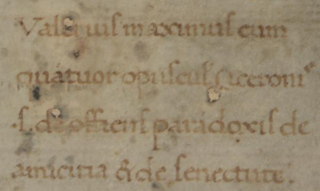 Valerius maximus cum
quatuor opuscul ciceronis
.s. de officiis paradoxis de
amicitia & de senectute.